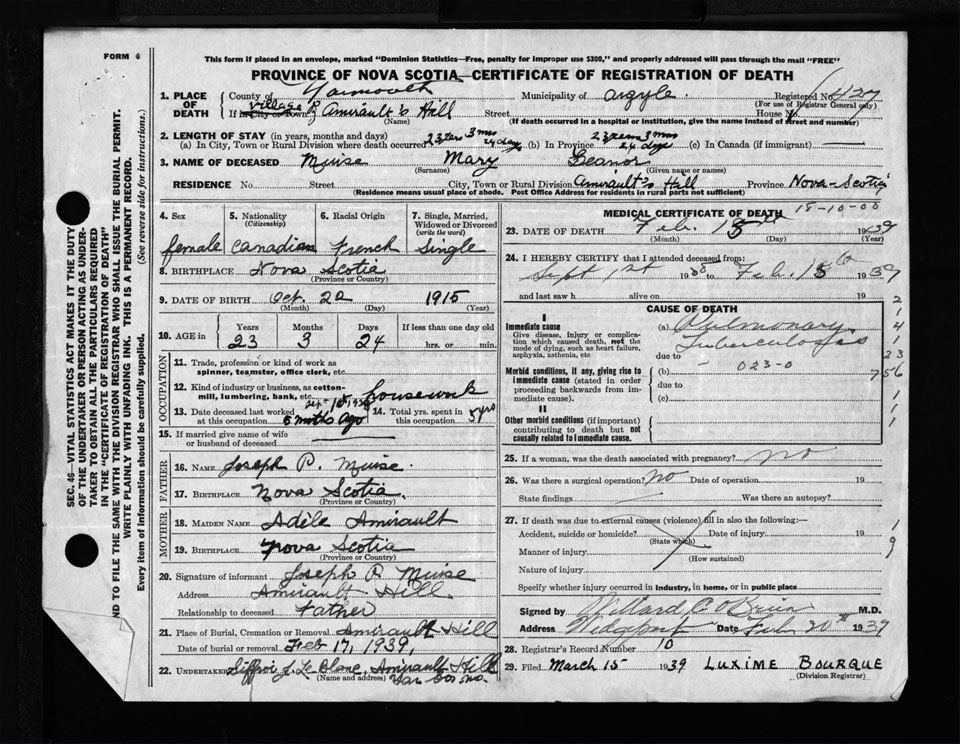 FORM 6
This form if placed in an envelope, marked "Dominion Statistics—Free, penalty for improper use $300," and properly addressed will pass through the mail "FREE"
PROVINCE OF NOVA SCOTIA—CERTIFICATE OF REGISTRATION OF DEATH
1. PLACE OF DEATH County of Yarmouth Municipality of Argyle Registered No. 427
(For use of Registrar General only)
If in City or Town Village of Amirault's Hill Street House No.
(Name) (If death occurred in a hospital or institution, give the name instead of street and number)
2. LENGTH OF STAY (in years, months and days)
(a) In City, Town or Rural Division where death occurred 23 yrs 3 mos 24 days (b) In Province 23 years 3 mos 24 days (c) In Canada (if immigrant)
3. NAME OF DECEASED Muise Mary Leanor
(Surname) (Given name or names)
RESIDENCE No. Street City, Town or Rural Division Amirault's Hill Province Nova-Scotia
(Residence means usual place of abode. Post Office Address for residents in rural parts not sufficient)
SEC. 46—VITAL STATISTICS ACT MAKES IT THE DUTY
OF THE UNDERTAKER OR PERSON ACTING AS UNDERTAKER TO OBTAIN ALL THE PARTICULARS REQUIRED
IN THE "CERTIFICATE OF REGISTRATION OF DEATH"
ND TO FILE THE SAME WITH THE DIVISION REGISTRAR WHO SHALL ISSUE THE BURIAL PERMIT.
WRITE PLAINLY WITH UNFADING INK. THIS IS A PERMANENT RECORD.
Every item of information should be carefully supplied. (See reverse side for instructions.)
4. Sex 5. Nationality (Citizenship) 6. Racial Origin 7. Single, Married, Widowed or Divorced (write the word)
female Canadian French Single
8. BIRTHPLACE Nova Scotia
(Province or Country)
9. DATE OF BIRTH Oct. 22 1915
(Month) (Day) (Year)
10. AGE in Years Months Days If less than one day old
23 3 24 hrs. or min.
OCCUPATION
11. Trade, profession or kind of work as spinner, teamster, office clerk, etc.
12. Kind of industry or business, as cotton-mill, lumbering, bank, etc. housework
13. Date deceased last worked at this occupation Sept 1st, 1938 5 mnths ago 14. Total yrs. spent in this occupation 5 yrs
15. If married give name of wife or husband of deceased
FATHER
16. NAME Joseph P. Muise.
17. BIRTHPLACE Nova Scotia.
(Province or Country)
MOTHER
18. MAIDEN NAME Adèle Amirault
19. BIRTHPLACE Nova Scotia
(Province or Country)
20. Signature of informant Joseph P. Muise
Address Amirault Hill.
Relationship to deceased Father
21. Place of Burial, Cremation or Removal Amirault Hill
Date of burial or removal Feb 17, 1939,
22. UNDERTAKER Siffroi J. Le Blanc, Amirault Hill
(Name and address) Yar. Co.
MEDICAL CERTIFICATE OF DEATH
18-10-00
23. DATE OF DEATH Feb. 15 1939
(Month) (Day) (Year)
24. I HEREBY CERTIFY that I attended deceased from
Sept 1st 1938 to Feb. 15 1939
and last saw h alive on 19
CAUSE OF DEATH
I
Immediate cause
Give disease, injury or complication which caused death, not the mode of dying, such as heart failure, asphyxia, asthenia, etc
(a) Pulmonary Tuberculosis
due to
Morbid conditions, if any, giving rise to immediate cause (stated in order proceeding backwards from immediate cause).
(b) 023-0
due to
(c)
II
Other morbid conditions (if important) contributing to death but not causally related to immediate cause.
2
1
4
1
23
756
1
1
1
25. If a woman, was the death associated with pregnancy? no
26. Was there a surgical operation? No Date of operation 19
State findings Was there an autopsy?
27. If death was due to external causes (violence) fill in also the following:—
Accident, suicide or homicide? Date of injury 19
(State which)
Manner of injury
(How sustained)
Nature of injury
1
9
Specify whether injury occurred in industry, in home, or in public place
Signed by Willard C O'Brien M.D.
Address Wedgeport Date Feb 20th 1939
28. Registrar's Record Number 10
29. Filed March 15 1939 LUXIME BOURQUE
(Division Registrar)